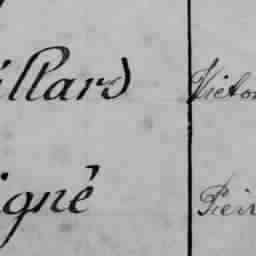 illard Victor
igné Pier